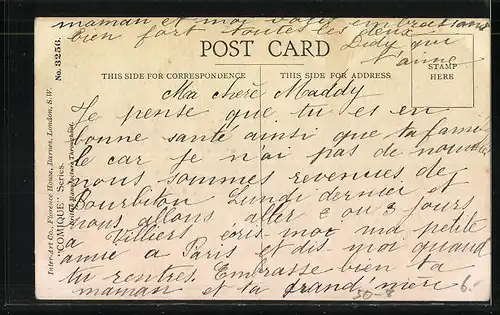 maman et moi vous embrassons
bien fort toutes les deux
Didy qui
t'aime
POST CARD
THIS SIDE FOR CORRESPONDENCE
THIS SIDE FOR ADDRESS
STAMP
HERE
Ma chère Maddy
Je pense que tu es en
bonne santé ainsi que ta famil
le car je n'ai pas de nouvelles
nous sommes revenues de
Lundi dernier et
nous allons aller 2 ou 3 jours
a Villiers écris-moi ma petite
amie a Paris et dis moi quand
tu rentres. Embrasse bien ta
maman et ta grand mère
50-8
6.-
No. 3256.
"COMIQUE" Series.
British Manufacture Throughout.
Inter-Art Co., Florence House, Barnes, London, S.W.